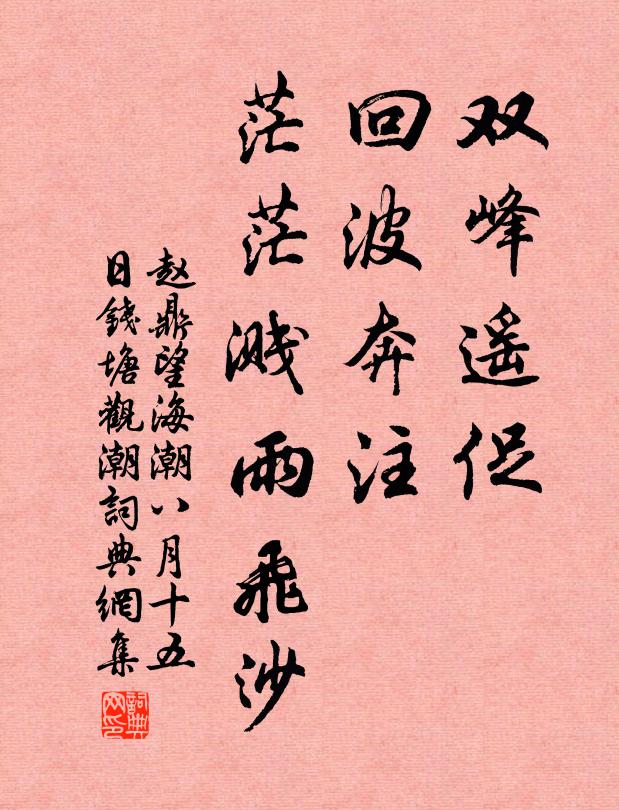 双峰遥促
回波奔注
茫茫溅雨飛沙
赵鼎望海潮八月十五
日錢塘觀潮詞典網集
詞典
网印